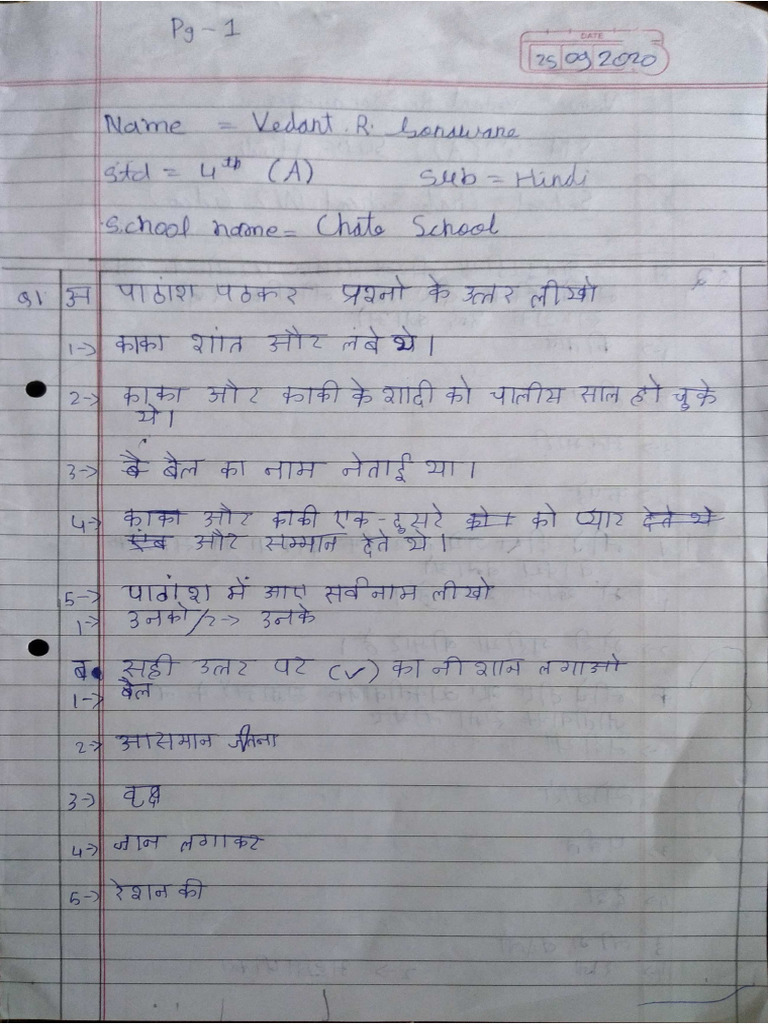 Pg - 1
DATE
25 09 2020
Name = Vedant R. Sonawane
Std = 4th (A) Sub = Hindi
School name = Chate School
Q1 अ पाठांश पठकर प्रश्नो के उत्तर लीखो
1-> काका शांत और लंबे थे।
2-> काका और काकी के शादी को चालीस साल हो चुके
थे।
3-> बैल का नाम नेताई था।
4-> काका और काकी एक-दुसरे को प्यार देते थे
और सम्मान देते थे।
5-> पाठांश में आए सर्वनाम लीखो
1-> उनको / 2-> उनके
ब. सही उत्तर पर (✓) का नीशान लगाओ
1-> बैल
2-> आसमान जीतना
3-> वृक्ष
4-> जान लगाकर
5-> रेशन की